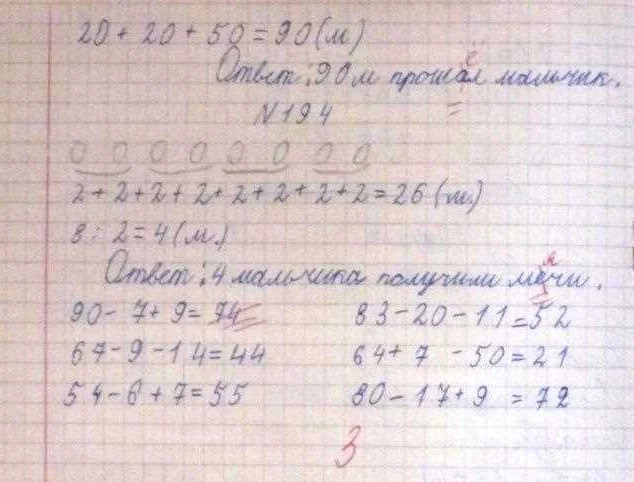 20 + 20 + 50 = 90 (м)
Ответ: 90 м прошал мальчик.
е
N 194
0 0 0 0 0 0 0 0
2 + 2 + 2 + 2 + 2 + 2 + 2 + 2 = 26 (м.)
8 : 2 = 4 (м.)
я
Ответ: 4 мальчика получили мечи.
90 - 7 + 9 = 74 83 - 20 - 11 = 52
67 - 9 - 14 = 44 64 + 7 - 50 = 21
54 - 6 + 7 = 55 80 - 17 + 9 = 72
3